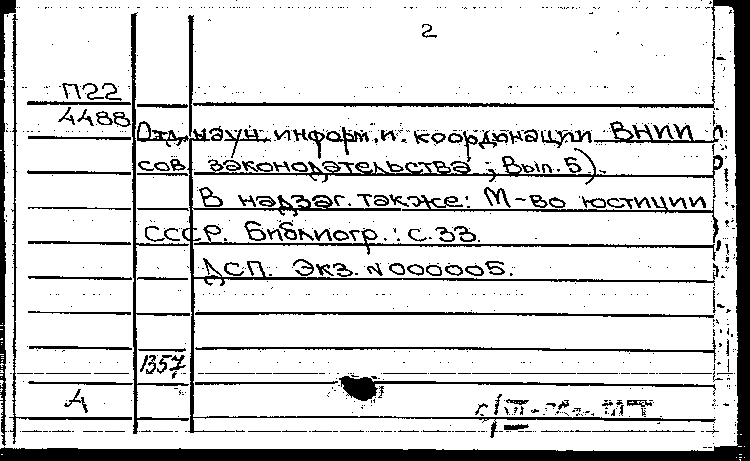 2
П22
4488
Отд. науч. информ. и. координации ВНИИ
сов. законодательства ; Вып. 5).
В надзаг. также: М-во юстиции
СССР. Библиогр.: с. 33.
ДСП. Экз. N 000005.
1357
А